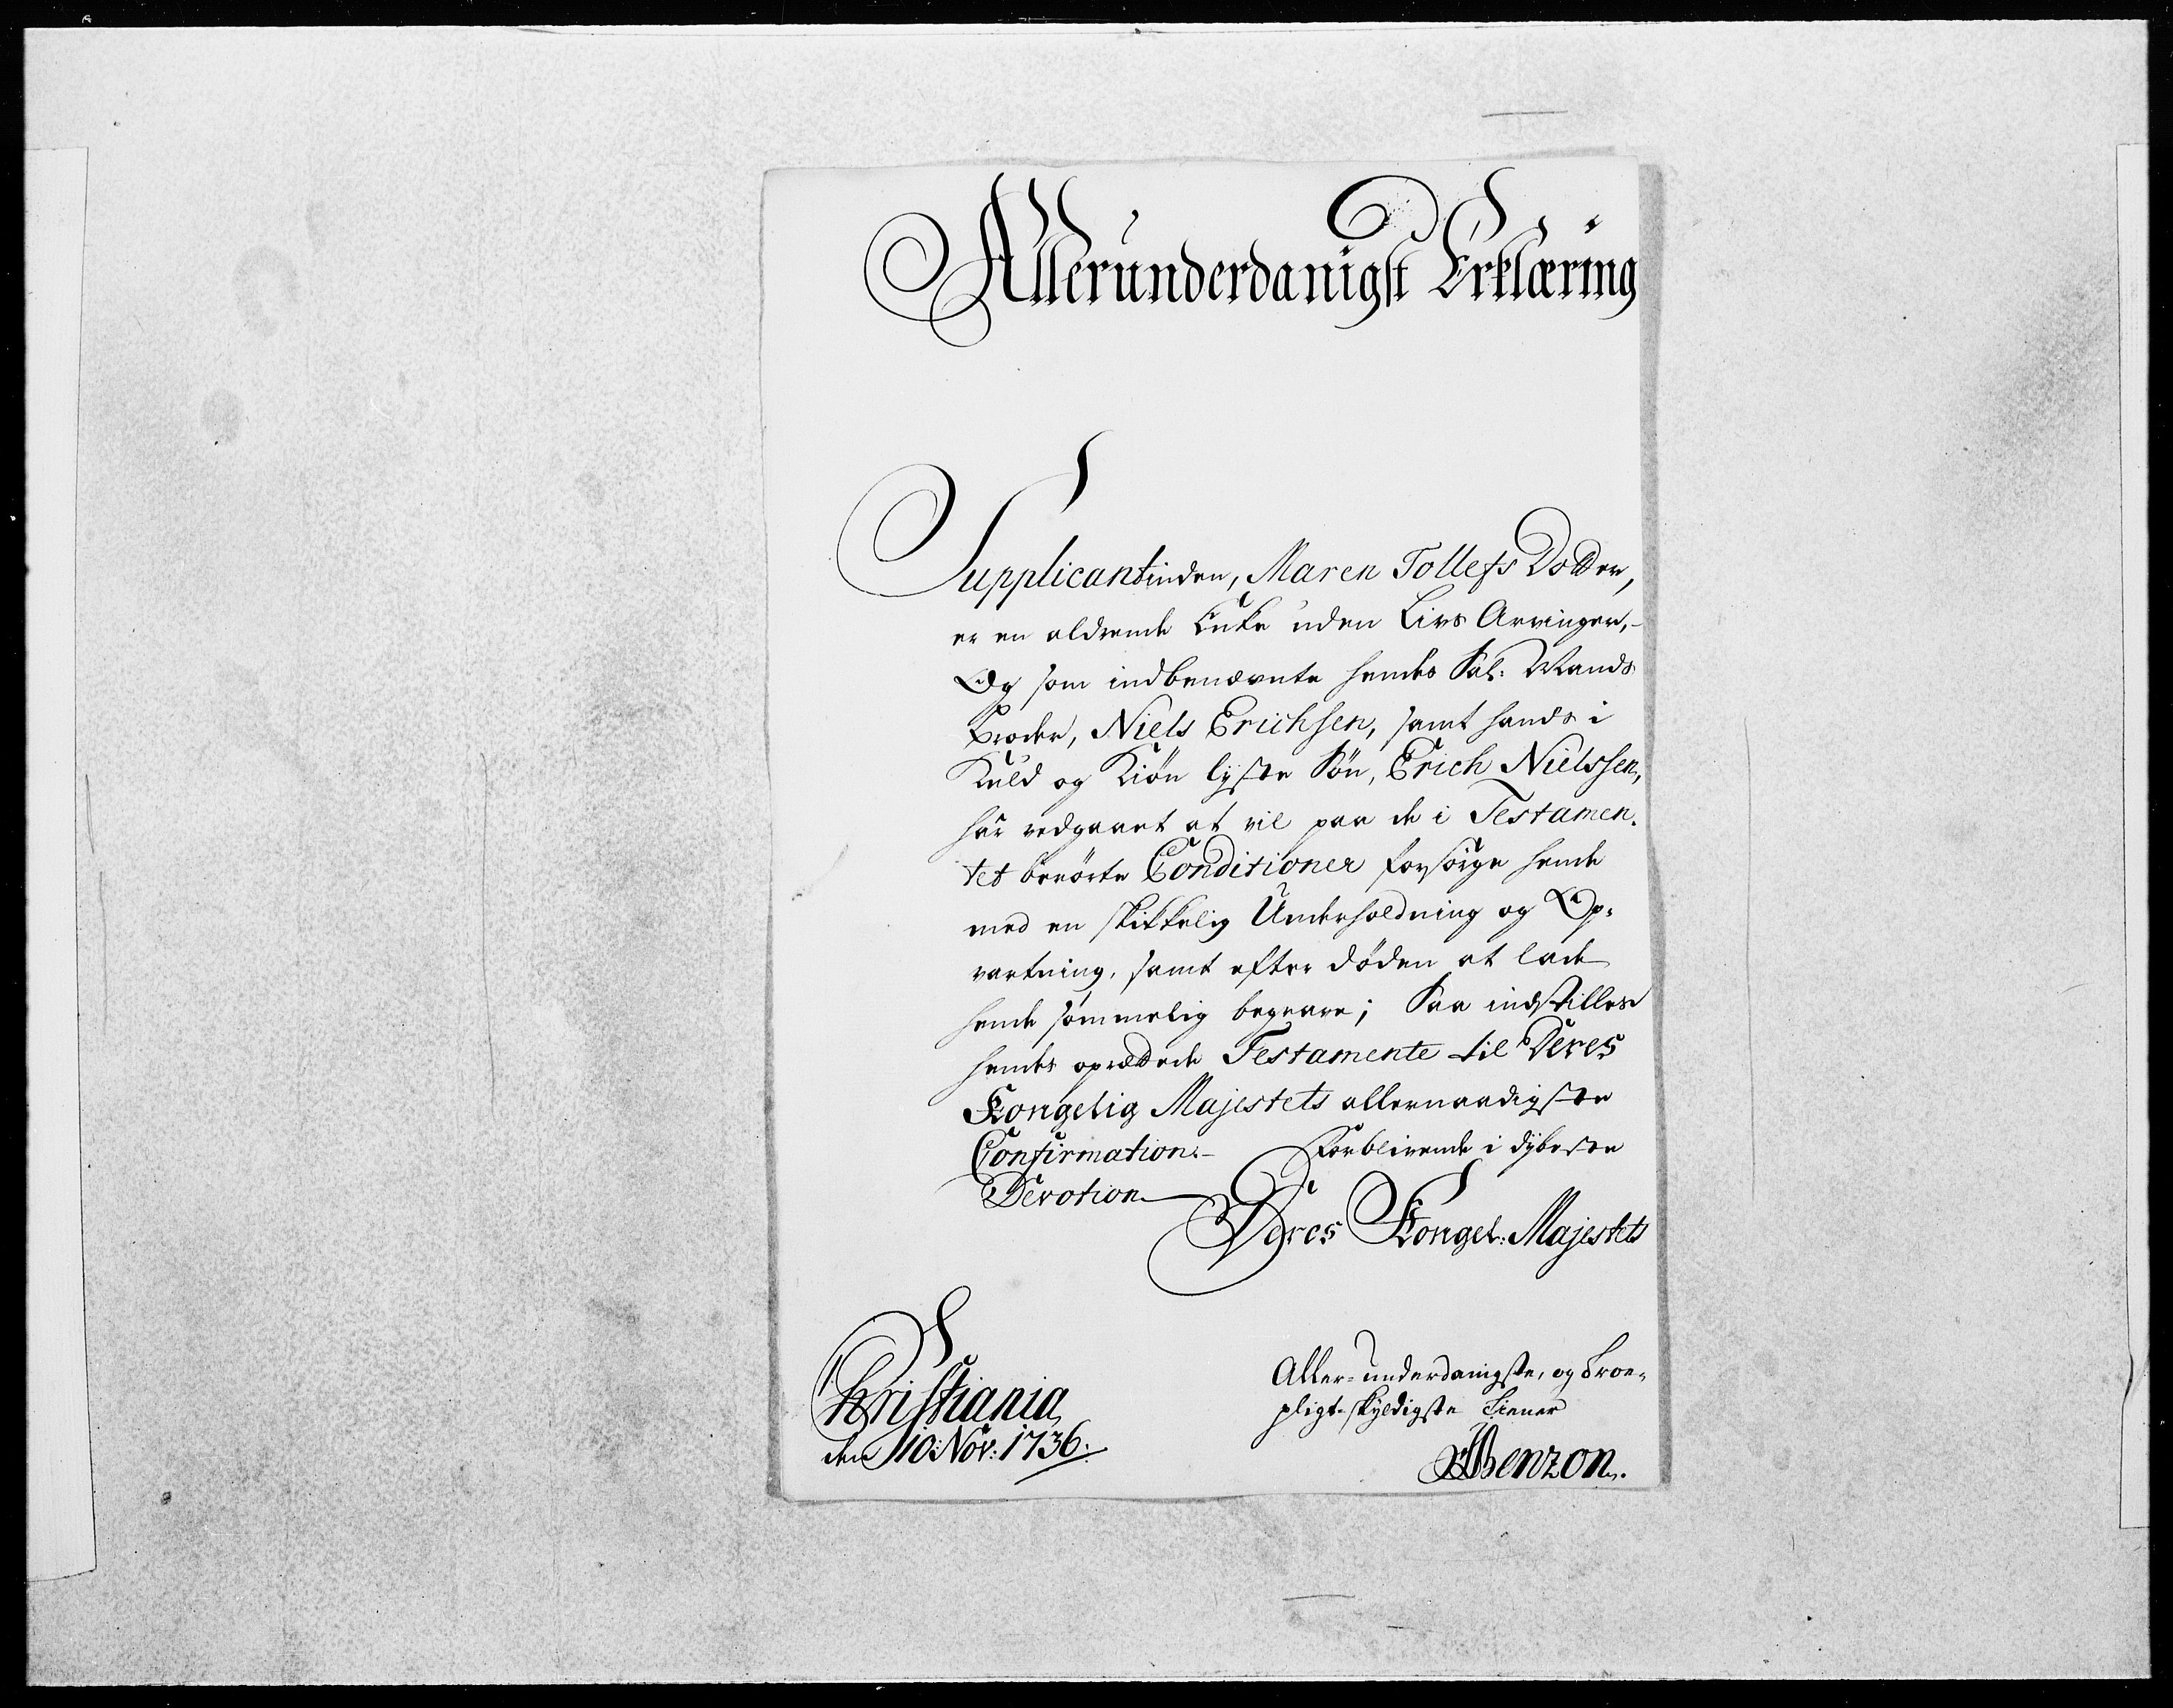 Allerunderdanigst Erklæring
Supplicantinden, Maren Tollefs Dotter,
er en aldrende Enke uden Livs Arvinger,-
Og som indbenævnte hendes Sal: Mands
Broder, Niels Erichsen, samt hands i
Kuld og Kiøn lyste Søn, Erich Nielssen,
har vedgaaet at vil paa de i Testamen-
tet berørte Conditioner forsørge hende
med en skikkelig Underholdning og Op-
vartning, samt efter døden at lade
hende sømmelig begrave; Saa indstilles
hendes oprettede Testamente til Deres
Kongelig Majestets allernaadigste
Confirmation.- Forblivende i dybeste
Devotion
Deres Kongel: Majestets
Christiania
den 10: Nov: 1736.
Aller-underdanigste, og troe-
pligt-skyldigste Tiener
Benzon.